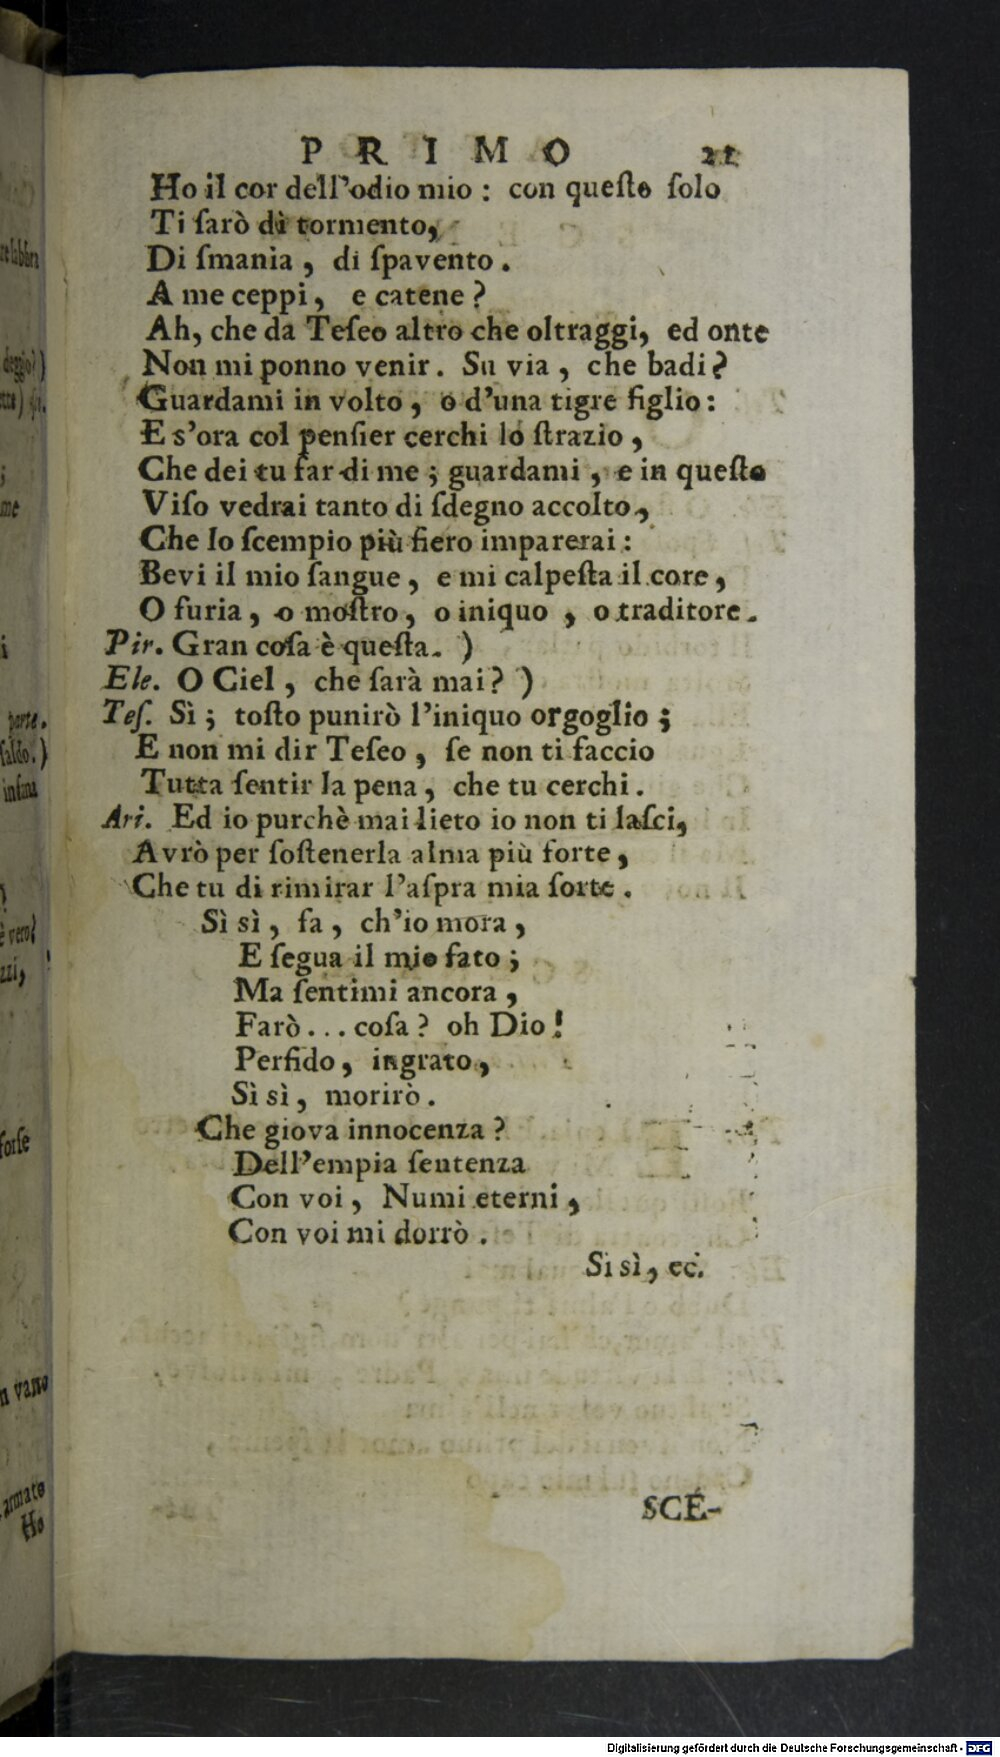 PRIMO 21
Ho il cor dell'odio mio : con queſto ſolo
Ti ſarò di tormento,
Di ſmania , di ſpavento .
A me ceppi , e catene ?
Ah, che da Teſeo altro che oltraggi, ed onte
Non mi ponno venir . Su via , che badi ?
Guardami in volto , o d'una tigre figlio :
E s'ora col penſier cerchi lo ſtrazio ,
Che dei tu far di me ; guardami , e in queſto
Viſo vedrai tanto di ſdegno accolto ,
Che lo ſcempio più fiero imparerai :
Bevi il mio ſangue , e mi calpeſta il core ,
O furia , o moſtro , o iniquo , o traditore .
Pir. Gran coſa è queſta. )
Ele. O Ciel , che ſarà mai ? )
Teſ. Sì ; toſto punirò l'iniquo orgoglio ;
E non mi dir Teſeo , ſe non ti faccio
Tutta ſentir la pena , che tu cerchi .
Ari. Ed io purchè mai lieto io non ti laſci,
Avrò per ſoſtenerla alma più forte ,
Che tu di rimirar l'aſpra mia ſorte .
Sì sì , fa , ch'io mora ,
E ſegua il mio fato ;
Ma ſentimi ancora ,
Farò . . . coſa ? oh Dio !
Perfido , ingrato ,
Sì sì , morirò .
Che giova innocenza ?
Dell'empia ſentenza
Con voi , Numi eterni ,
Con voi mi dorrò .
Si sì , ec.
SCE-
re labbra
deggio? )
parte.
ſaldo. )
è vero?
forſe
n vano
armato
Ho
Digitalisierung gefördert durch die Deutsche Forschungsgemeinschaft - DFG